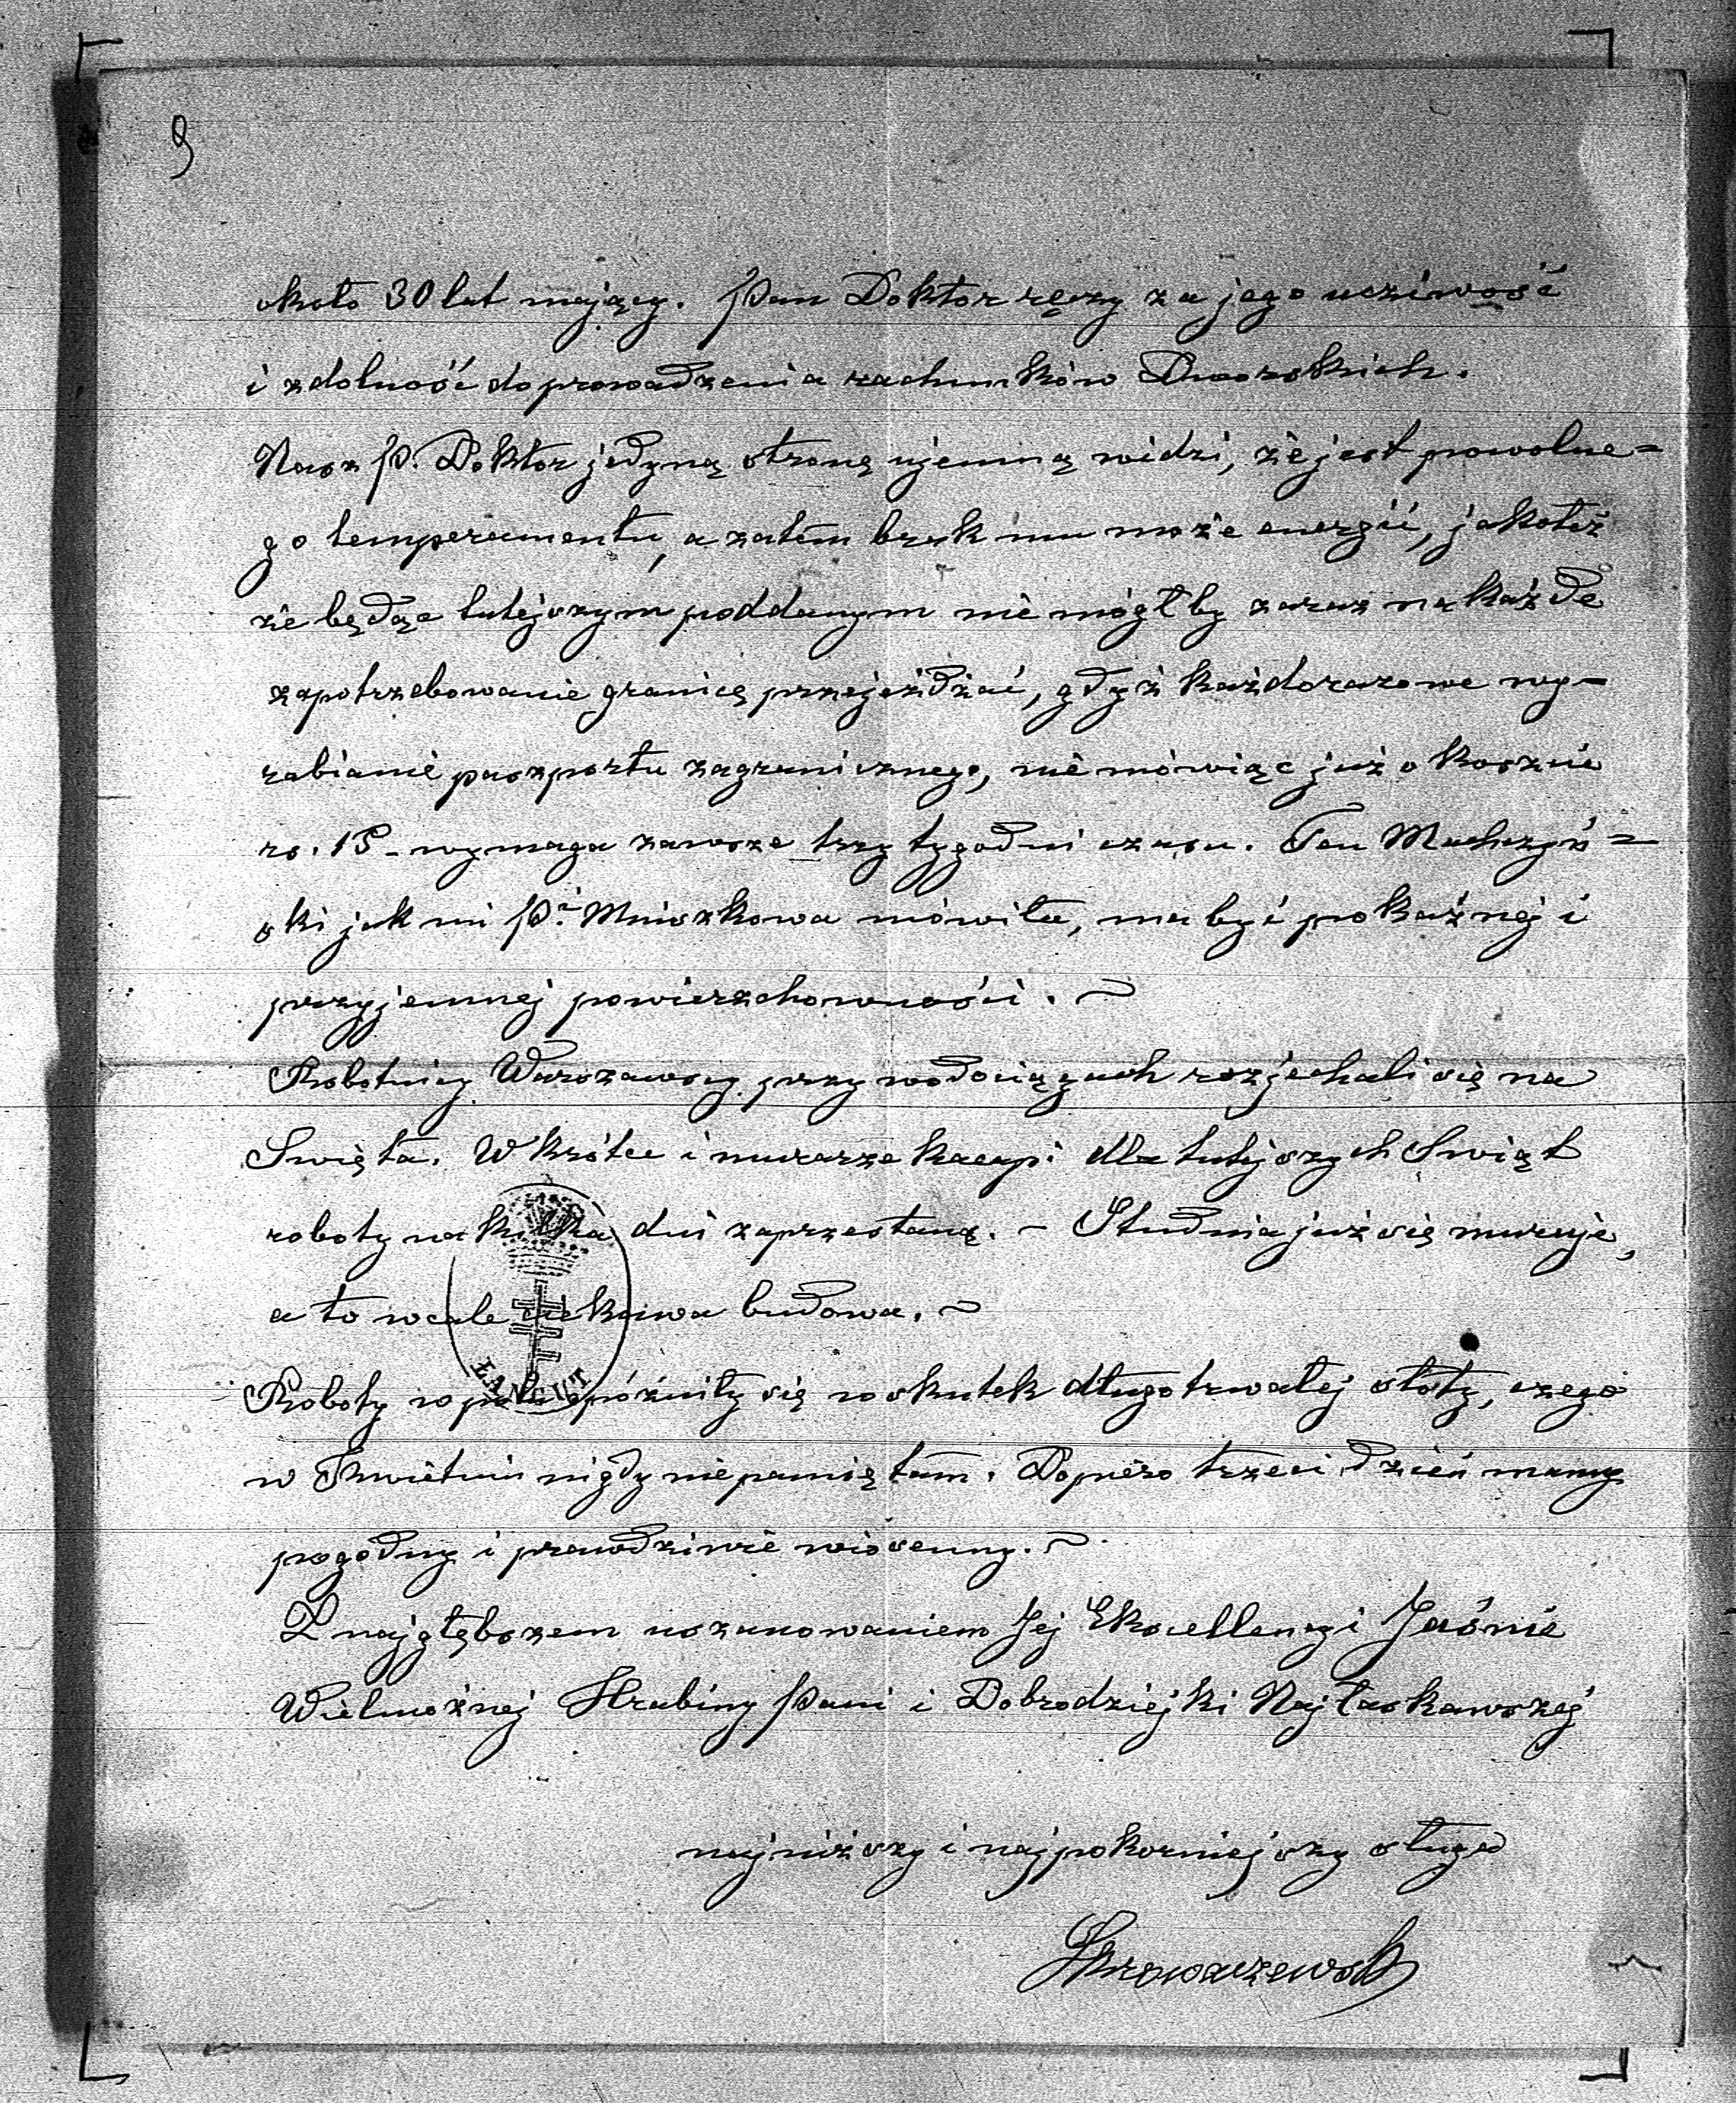 9
około 30 lat mający. Pan Doktor ręczy za jego uczciwość
i zdolność do prowadzenia rachunków Dworskich.
Nasz P. Doktor jedyną stroną ujemną widzi, że jest powolne=
go temperamentu, a zatem brak mu może energii, jakoteż
że będąc tutejszym poddanym nie mógłby zaraz na każde
zapotrzebowanie granicę przejeżdżać, gdyż każdorazowe wy-
rabianie paszportu zagranicznego, nie mówiąc już o koszcie
rs. 15 - wymaga zawsze trzy tygodni czasu. Ten Machczyń=
ski jak mi P.i Mniszkowa mówiła, ma być pokaźnej i
przyjemnej powierzchowności. ~
Robotnicy Warszawscy przy wodociągach rozjechali się na
Święta. Wkrótce i murarze kacapi dla tutejszych Świąt
roboty na kilka dni zaprzestaną. - Studnia już się muruje,
a to wcale ciekawa budowa. ~
ŁAŃCUT
Roboty w polu opóźniły się wskutek długotrwałej słoty, czego
w Kwietniu nigdy nie pamiętam. Dopiero trzeci dzień mamy
pogodny i prawdziwie wiosenny. ~
Z najgłębszem uszanowaniem Jej Ekscellencyi Jaśnie
Wielmożnej Hrabiny Pani i Dobrodziejki Najłaskawszej
najniższy i najpokorniejszy sługa